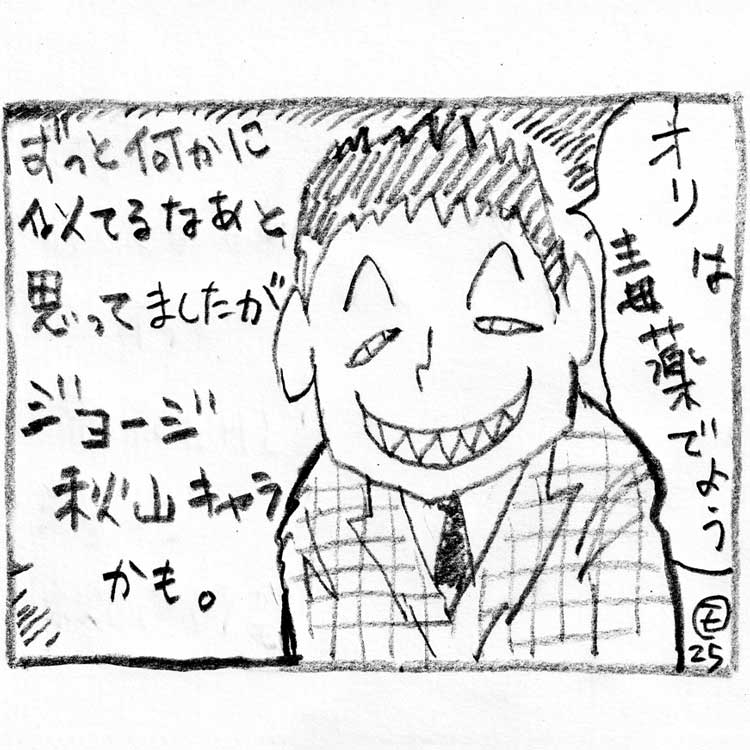 ずっと何かに
似てるなあと
思ってましたが
ジョージ
秋山キャラ
かも。
オリは
毒薬でよう
モ
25